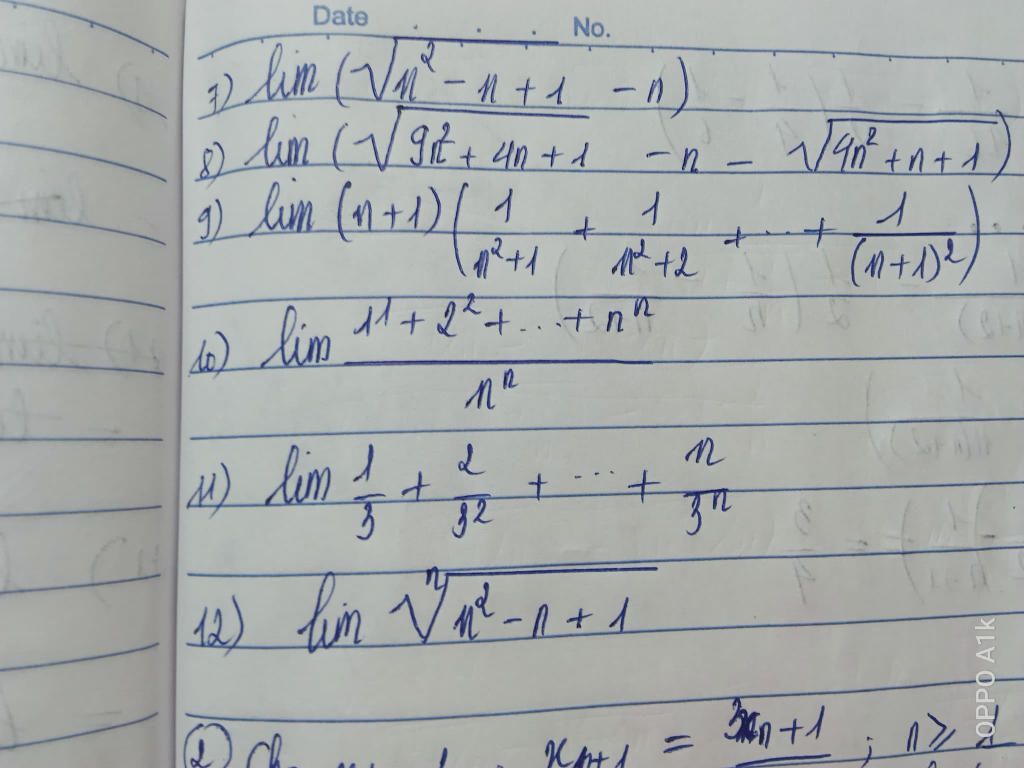 Date No.
7) lim (√(n² - n + 1) - n)
8) lim (√(9n² + 4n + 1) - n - √(4n² + n + 1))
9) lim (n+1) (1/(n²+1) + 1/(n²+2) + ... + 1/(n+1)²)
10) lim (1¹ + 2² + ... + nⁿ)/nⁿ
11) lim 1/3 + 2/3² + ... + n/3ⁿ
12) lim ⁿ√(n² - n + 1)
2) xₙ₊₁ = 3xₙ+1 ; n ≥ 1
OPPO A1k